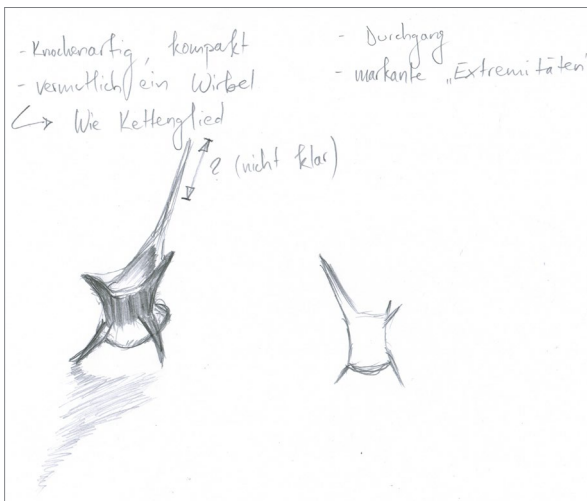 - Knochenartig, kompakt
- vermutlich ein Wirbel
↳ Wie Kettenglied
? (nicht klar)
- Durchgang
- markante „Extremitäten"